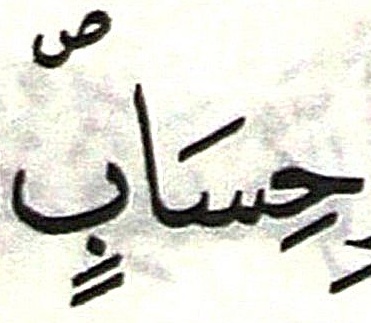 حِسَابٍ ۖ ص